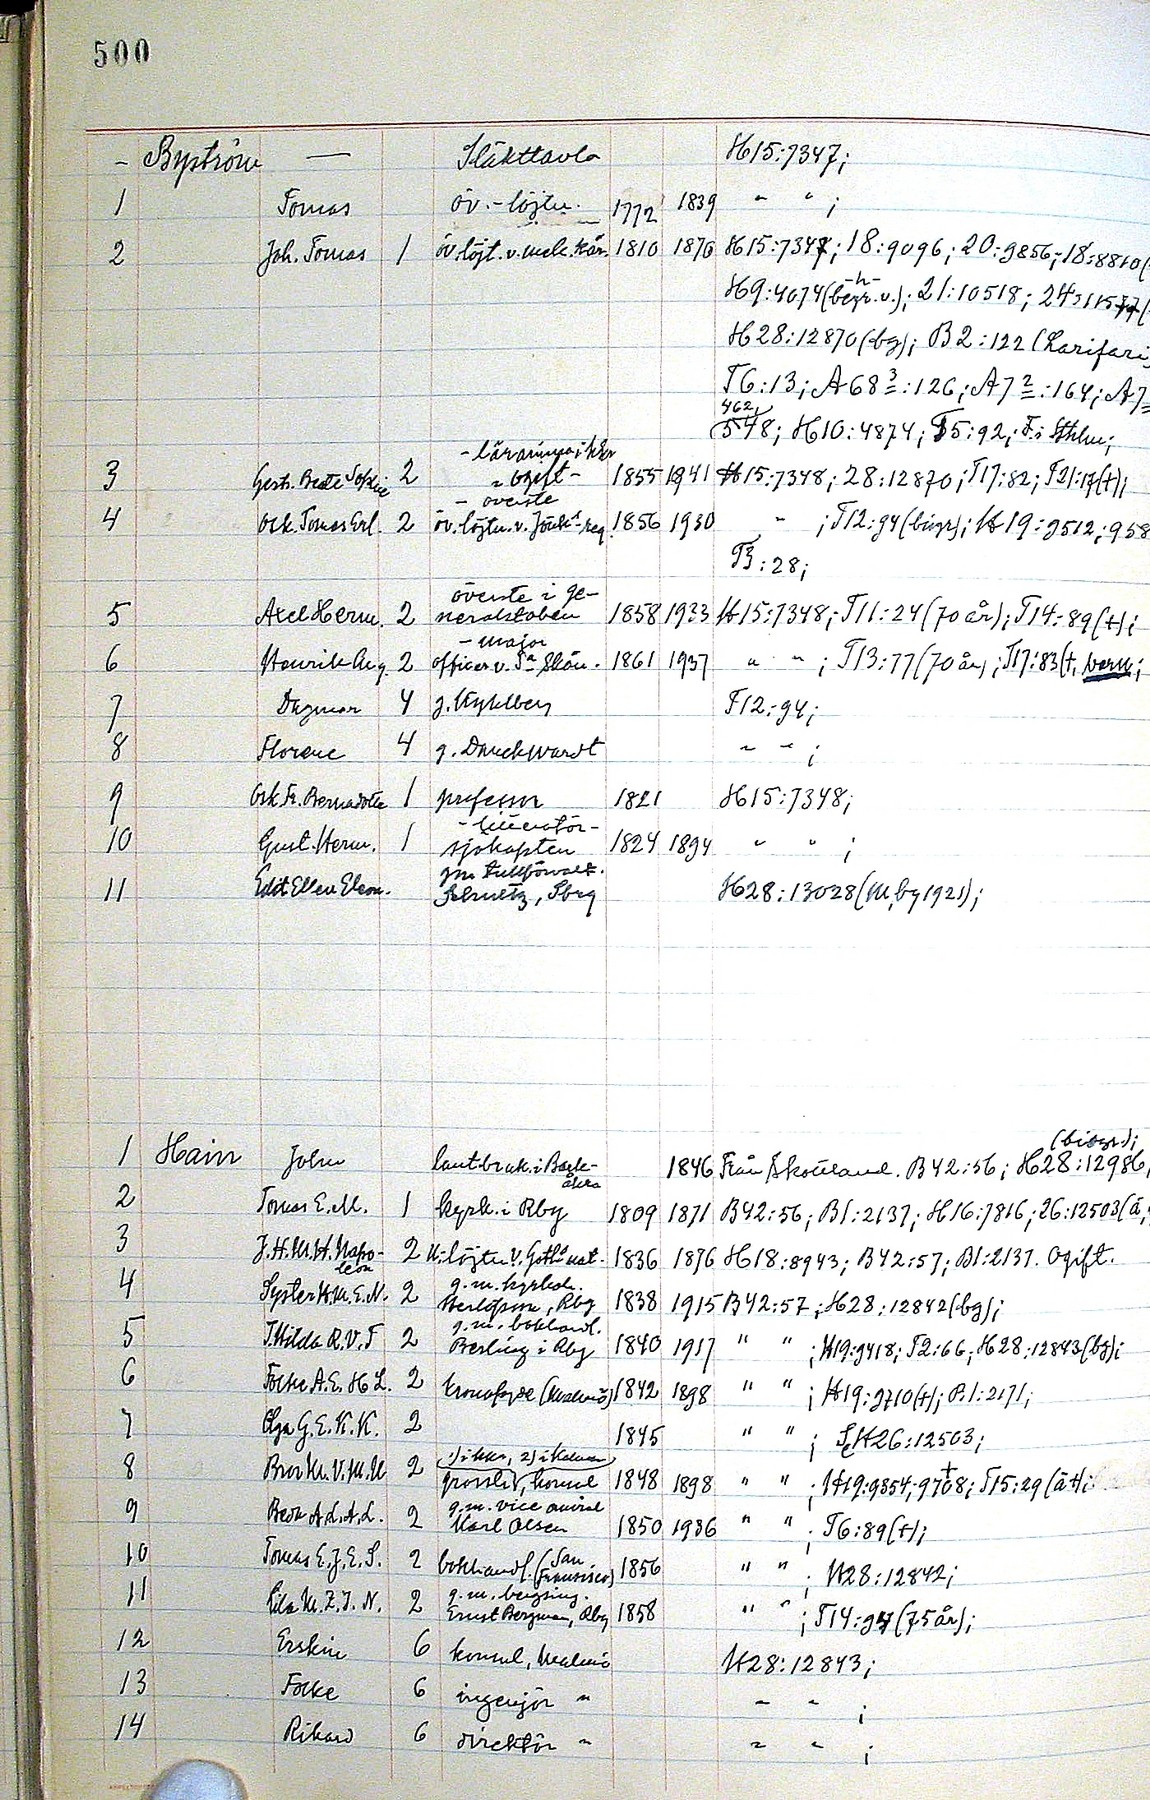 500
- Byström — Släkttavla H15:7347;
1 Tomas öv.-löjtn. 1772 1839 " " ;
2 Joh. Tomas 1 öv.löjt. v. mek. kår. 1810 1870 H15:7347; 18:9096; 20:9856; 18:8810(
H9:4074(begr. v.); 21:10518;
H28:12870(bg); B2:122 (Larifari
T6:13; A68³:126; A7²:164; A7
462,
548; H10:4874; T5:92; F.i Sthlm;
3 2 - lärarinna i
ogift - 1855 1941 H15:7348; 28:12870; T17:82; T21:17(+);
- överste
4 Osk. Tomas Erl. 2 öv.-löjtn. v. Jönk.-reg. 1856 1930 " ; T12:94(biogr); H19:9512; 958
T3:28;
5 Axel Herm. 2 överste i ge-
neralstaben 1858 1933 H15:7348; T11:24(70 år); T14:89(+);
- major
6 Henrik Aug. 2 officer v. Skån. 1861 1937 " " ; T13:77(70 år); T17:83(+,
7 Dagmar 4 g. Kylberg T12:94;
8 Florence 4 g. Danckwardt " " ;
9 Osk. Fr. Bernadotte 1 professor 1821 H15:7348;
- litteratör -
10 Gust. Herm. 1 sjökapten 1824 1894 " " ;
11 Edit Ellen Eleon. gm tullförvalt.
H28:13028(M, bg 1921);
(biogr);
1 Hain John lantbruk. i Bäck-
åkra 1846 Från Skottland. B42:56; H28:12986,
2 Tomas E. M. 1 kyrk. i Rby 1809 1871 B42:56; B1:2137; H16:7816; 26:12503(ä,
3 J. H. M. H. Napo-
leon 2 U.-löjtn. v. Gotl. nat. 1836 1876 H18:8943; B42:57; B1:2137. Ogift.
4 Syster H. M. E. N. 2 g. m. kyrkoh.
Rby 1838 1915 B42:57; H28:12842(bg);
5 T. Hilda R. V. T 2 g. m. bokhandl.
Berling i Rby 1840 1917 " " ; H19:9418; T2:66; H28:12843(bg);
6 Folke A. E. H L. 2 kronofogde (Malmö) 1842 1898 " " ; H19:9710(+); B1:2171;
7 Olga G. E. K. K. 2 1845 " " ; H26:12503;
8 Bror M. V. M. U 2 1) i kkr., 2) i Kalmar
grossh., konsul 1848 1898 " " ; H19:9854; 9708; T15:29(ä+);
9 Beda A. L. A. L. 2 g. m. vice amiral
Karl Olsen 1850 1936 " " ; T6:89(+);
10 Tomas E. J. E. S. 2 bokhandl. (San
Francisco) 1856 " " ; H28:12842;
11 M. Z. I. N. 2 g. m. bergsing.
Ernst Bergman, Rby 1858 " " ; T14:94(75 år);
12 Erskin 6 konsul, Malmö H28:12843;
13 Folke 6 ingenjör " " " ;
14 Rikard 6 direktör " " " ;